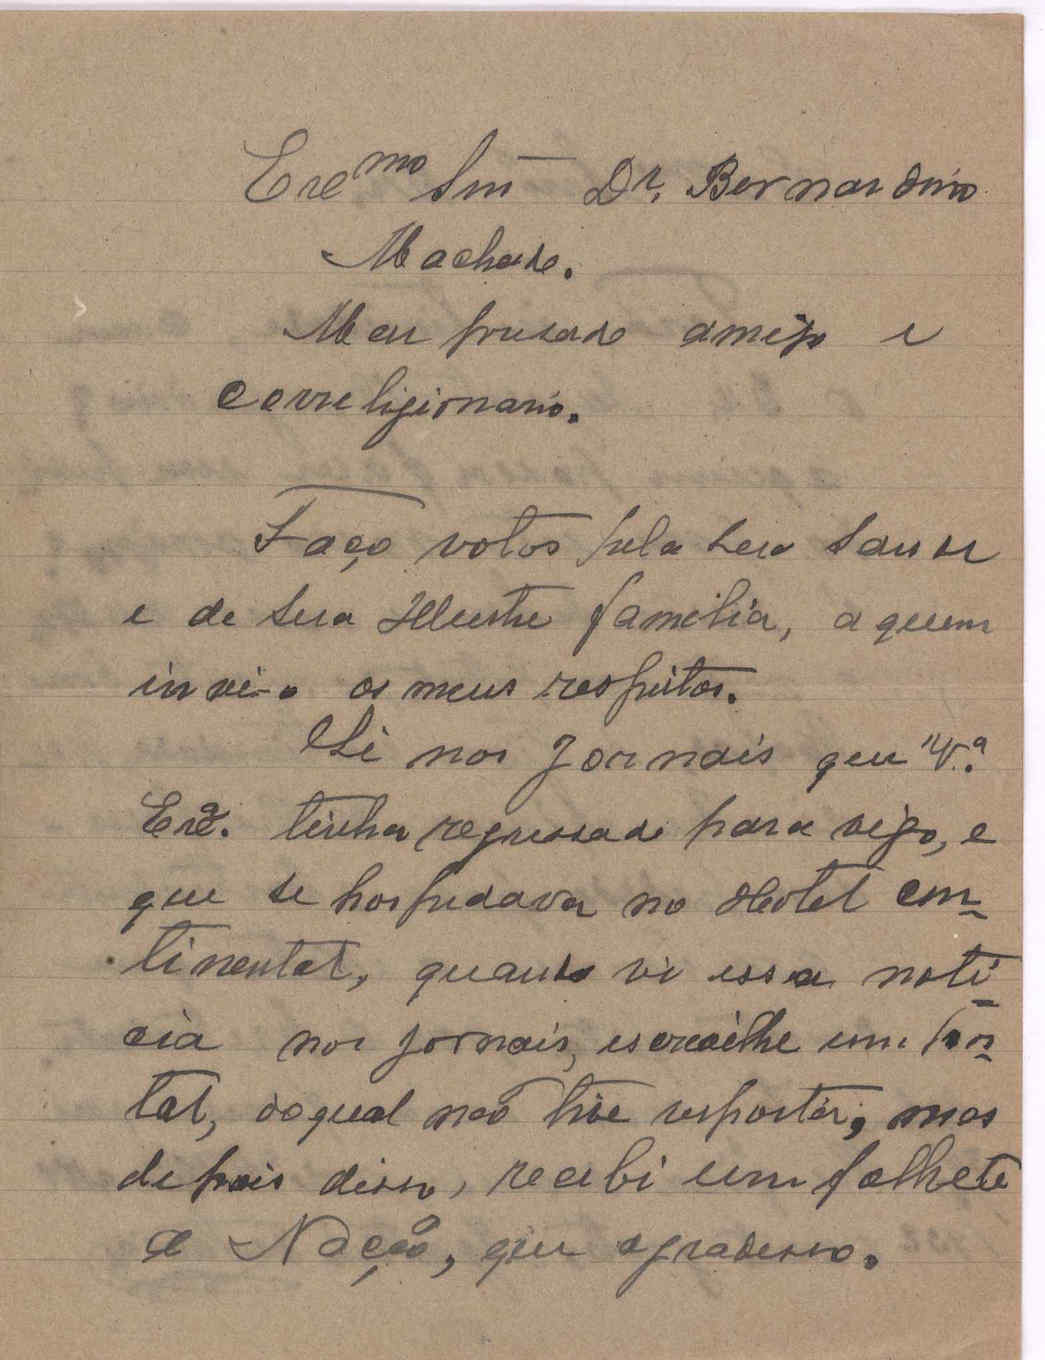 Exe^mo Snr Dr. Bernardino
Machado.
Meu presado amigo e
correligionario.
Faço votos pela sua saude
e de sua Illustre familia, a quem
invio os meus respeitos.
Li nos Jornais que V.ª
Exª. tinha regressado para vigo, e
que se hospedava no Hotel con-
tinental, quando vi essa noti-
cia nos Jornais, escrevilhe um pos-
tal, doqual não tive resposta; mas
depois disso, recebi um folheto
á Nação, que agradesso.